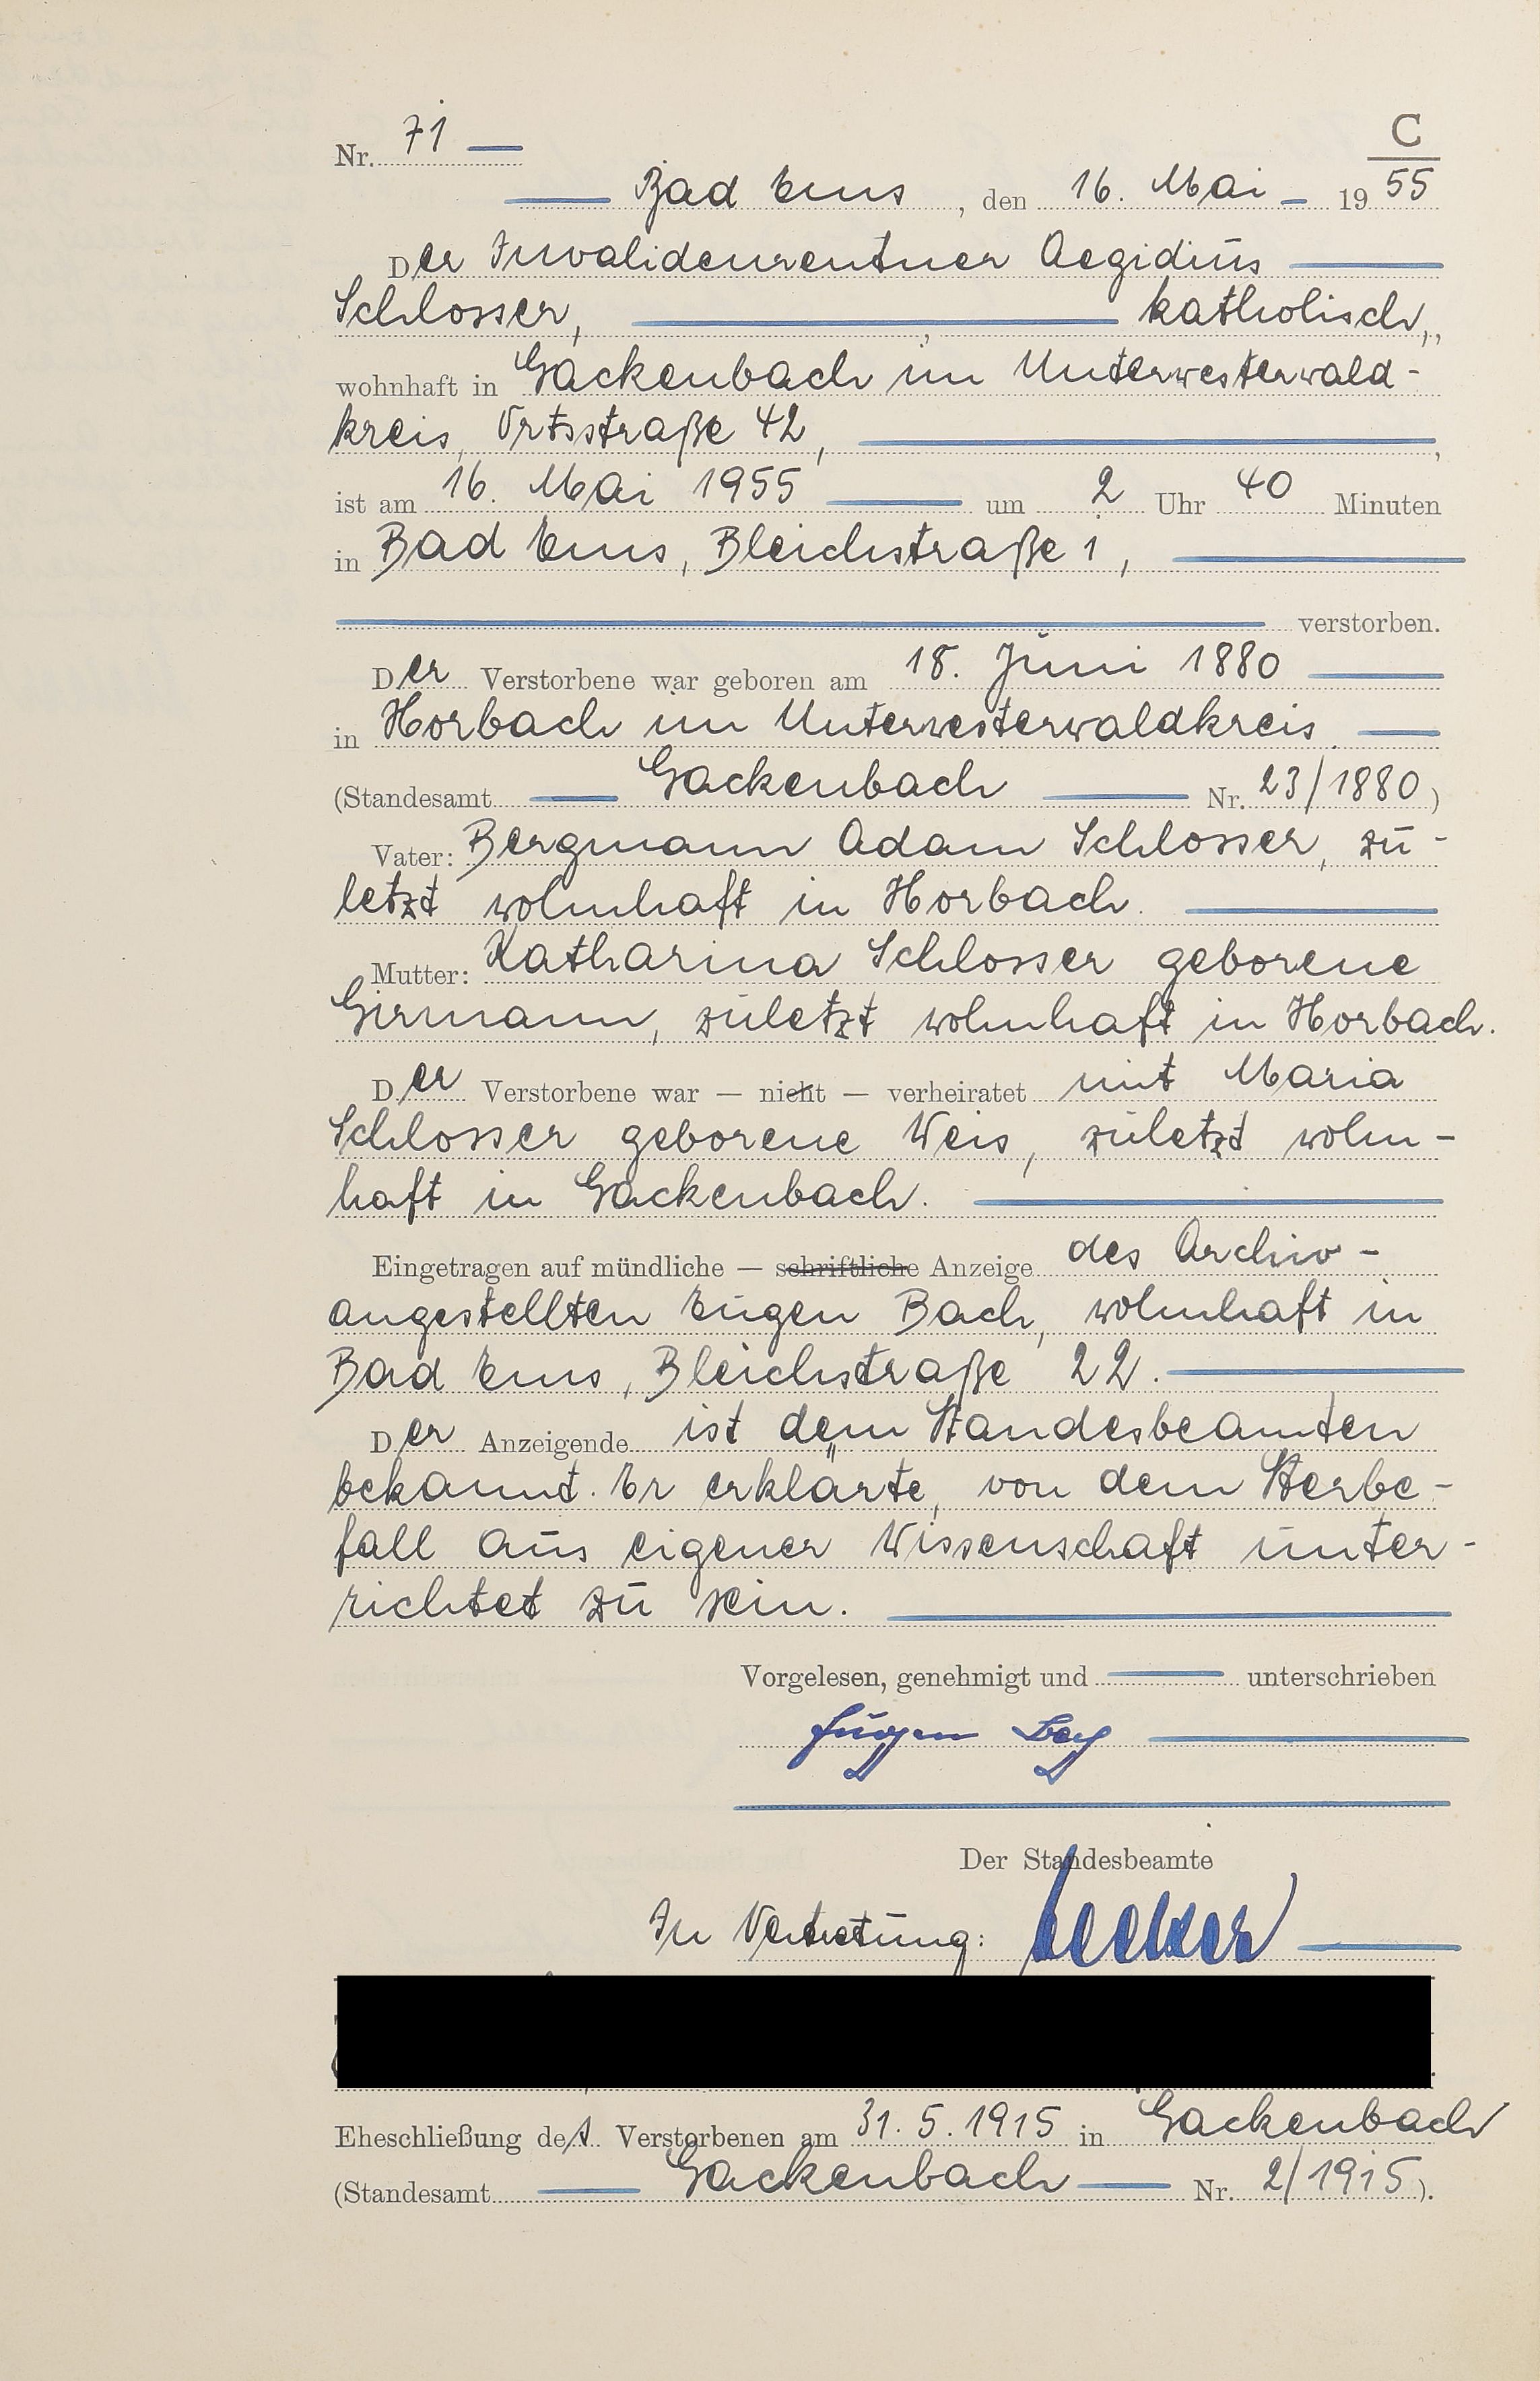 C
Nr. 71
Bad Ems, den 16. Mai 1955
Der Invalidenrentner Aegidius
Schlosser, , katholisch,,
wohnhaft in Gackenbach im Unterwesterwald-
kreis, Ortsstraße 42, ,
ist am 16. Mai 1955 um 2 Uhr 40 Minuten
in Bad Ems, Bleichstraße 1,
verstorben.
Der Verstorbene war geboren am 18. Juni 1880
in Horbach im Unterwesterwaldkreis.
(Standesamt Gackenbach Nr. 23/1880)
Vater: Bergmann Adam Schlosser, zu-
letzt wohnhaft in Horbach.
Mutter: Katharina Schlosser geborene
Germann, zuletzt wohnhaft in Horbach.
Der Verstorbene war — nicht — verheiratet mit Maria
Schlosser geborene Weis, zuletzt wohn-
haft in Gackenbach.
Eingetragen auf mündliche — schriftliche Anzeige des Archiv-
angestellten Eugen Bach, wohnhaft in
Bad Ems, Bleichstraße 22.
Der Anzeigende ist dem Standesbeamten
bekannt. Er erklärte, von dem Sterbe-
fall aus eigener Wissenschaft unter-
richtet zu sein.
Vorgelesen, genehmigt und unterschrieben
Eugen Bach
Der Standesbeamte
In Vertretung: Becker
Eheschließung des Verstorbenen am 31.5.1915 in Gackenbach
(Standesamt Gackenbach Nr. 2/1915).